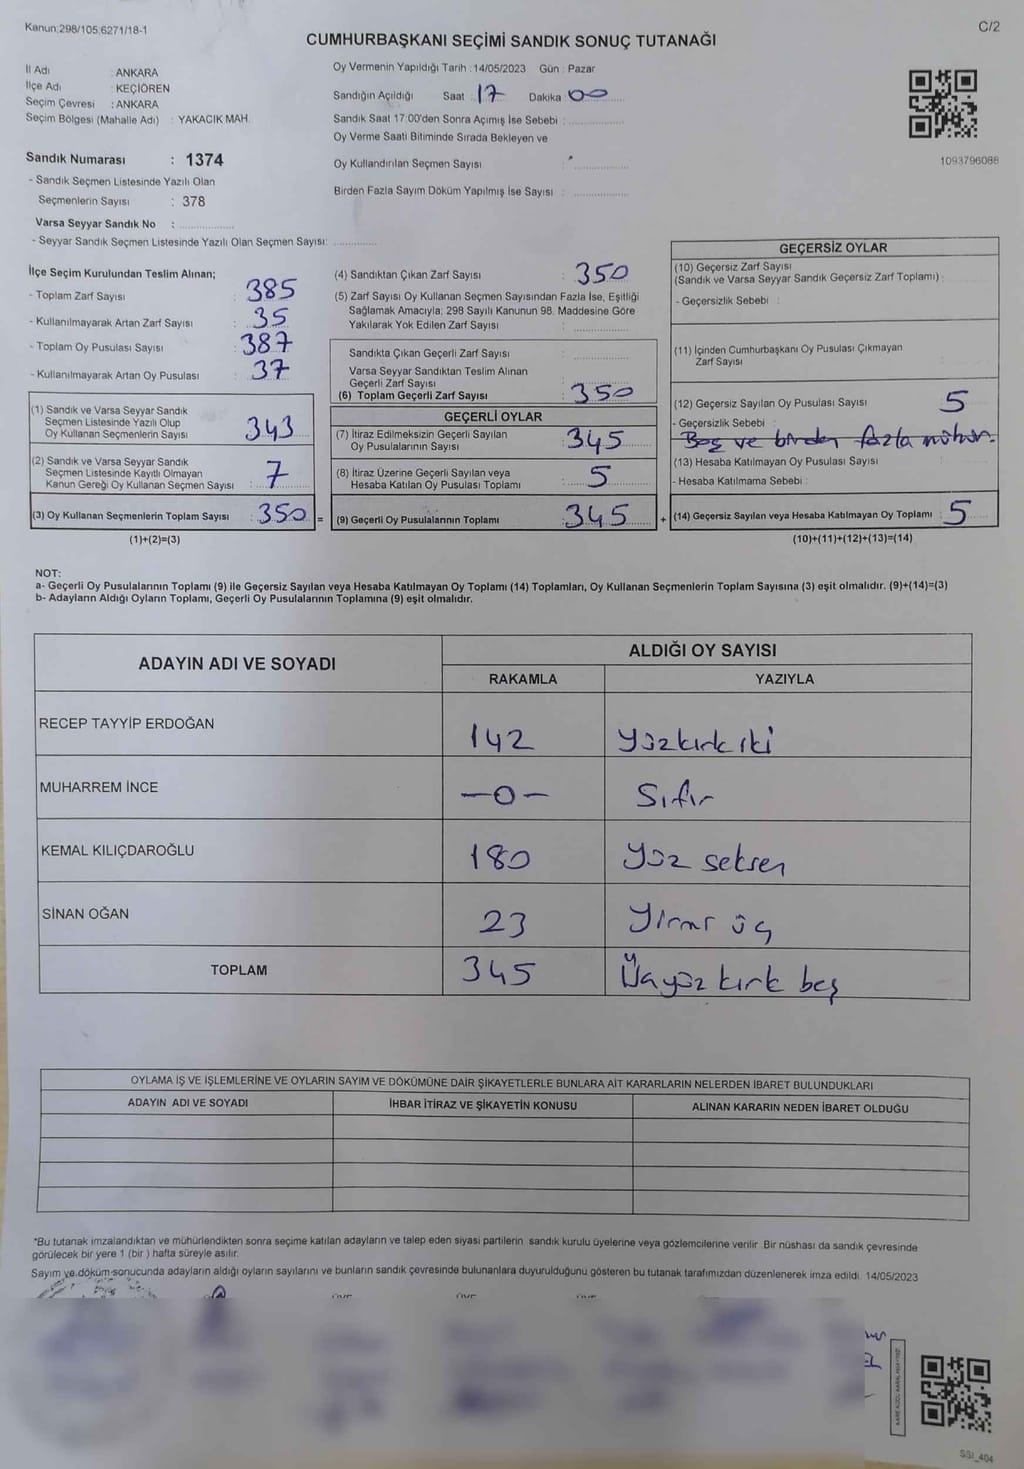 Kanun;298/105;6271/18-1
C/2
CUMHURBAŞKANI SEÇİMİ SANDIK SONUÇ TUTANAĞI
İl Adı : ANKARA
İlçe Adı : KEÇİÖREN
Seçim Çevresi : ANKARA
Seçim Bölgesi (Mahalle Adı) : YAKACIK MAH.
Oy Vermenin Yapıldığı Tarih : 14/05/2023 Gün : Pazar
Sandığın Açıldığı Saat : 17 Dakika : 00
Sandık Saat 17:00'den Sonra Açımış İse Sebebi :
Oy Verme Saati Bitiminde Sırada Bekleyen ve
Oy Kullandırılan Seçmen Sayısı :
Birden Fazla Sayım Döküm Yapılmış İse Sayısı :
1093796088
Sandık Numarası : 1374
- Sandık Seçmen Listesinde Yazılı Olan
Seçmenlerin Sayısı : 378
Varsa Seyyar Sandık No :
- Seyyar Sandık Seçmen Listesinde Yazılı Olan Seçmen Sayısı:
İlçe Seçim Kurulundan Teslim Alınan;
- Toplam Zarf Sayısı : 385
- Kullanılmayarak Artan Zarf Sayısı : 35
- Toplam Oy Pusulası Sayısı : 387
- Kullanılmayarak Artan Oy Pusulası : 37
(1) Sandık ve Varsa Seyyar Sandık
Seçmen Listesinde Yazılı Olup
Oy Kullanan Seçmenlerin Sayısı : 343
(2) Sandık ve Varsa Seyyar Sandık
Seçmen Listesinde Kayıtlı Olmayan
Kanun Gereği Oy Kullanan Seçmen Sayısı : 7
(3) Oy Kullanan Seçmenlerin Toplam Sayısı : 350 =
(1)+(2)=(3)
(4) Sandıktan Çıkan Zarf Sayısı : 350
(5) Zarf Sayısı Oy Kullanan Seçmen Sayısından Fazla İse, Eşitliği
Sağlamak Amacıyla; 298 Sayılı Kanunun 98. Maddesine Göre
Yakılarak Yok Edilen Zarf Sayısı :
Sandıkta Çıkan Geçerli Zarf Sayısı :
Varsa Seyyar Sandıktan Teslim Alınan
Geçerli Zarf Sayısı :
(6) Toplam Geçerli Zarf Sayısı : 350
GEÇERLİ OYLAR
(7) İtiraz Edilmeksizin Geçerli Sayılan
Oy Pusulalarının Sayısı : 345
(8) İtiraz Üzerine Geçerli Sayılan veya
Hesaba Katılan Oy Pusulası Toplamı : 5
(9) Geçerli Oy Pusulalarının Toplamı : 345 +
GEÇERSİZ OYLAR
(10) Geçersiz Zarf Sayısı
(Sandık ve Varsa Seyyar Sandık Geçersiz Zarf Toplamı) :
- Geçersizlik Sebebi :
(11) İçinden Cumhurbaşkanı Oy Pusulası Çıkmayan
Zarf Sayısı :
(12) Geçersiz Sayılan Oy Pusulası Sayısı : 5
- Geçersizlik Sebebi :
Boş ve birden fazla mühür.
(13) Hesaba Katılmayan Oy Pusulası Sayısı :
- Hesaba Katılmama Sebebi :
(14) Geçersiz Sayılan veya Hesaba Katılmayan Oy Toplamı : 5
(10)+(11)+(12)+(13)=(14)
NOT:
a- Geçerli Oy Pusulalarının Toplamı (9) ile Geçersiz Sayılan veya Hesaba Katılmayan Oy Toplamı (14) Toplamları, Oy Kullanan Seçmenlerin Toplam Sayısına (3) eşit olmalıdır. (9)+(14)=(3)
b- Adayların Aldığı Oyların Toplamı, Geçerli Oy Pusulalarının Toplamına (9) eşit olmalıdır.
ADAYIN ADI VE SOYADI
ALDIĞI OY SAYISI
RAKAMLA YAZIYLA
RECEP TAYYİP ERDOĞAN 142 Yüzkırk iki
MUHARREM İNCE -0- Sıfır
KEMAL KILIÇDAROĞLU 180 Yüz seksen
SİNAN OĞAN 23 Yirmi üç
TOPLAM 345 Üçyüz kırk beş
OYLAMA İŞ VE İŞLEMLERİNE VE OYLARIN SAYIM VE DÖKÜMÜNE DAİR ŞİKAYETLERLE BUNLARA AİT KARARLARIN NELERDEN İBARET BULUNDUKLARI
ADAYIN ADI VE SOYADI İHBAR İTİRAZ VE ŞİKAYETİN KONUSU ALINAN KARARIN NEDEN İBARET OLDUĞU
*Bu tutanak imzalandıktan ve mühürlendikten sonra seçime katılan adayların ve talep eden siyasi partilerin sandık kurulu üyelerine veya gözlemcilerine verilir. Bir nüshası da sandık çevresinde
görülecek bir yere 1 (bir ) hafta süreyle asılır.
Sayım ve döküm sonucunda adayların aldığı oyların sayılarını ve bunların sandık çevresinde bulunanlara duyurulduğunu gösteren bu tutanak tarafımızdan düzenlenerek imza edildi. 14/05/2023
SSI_404